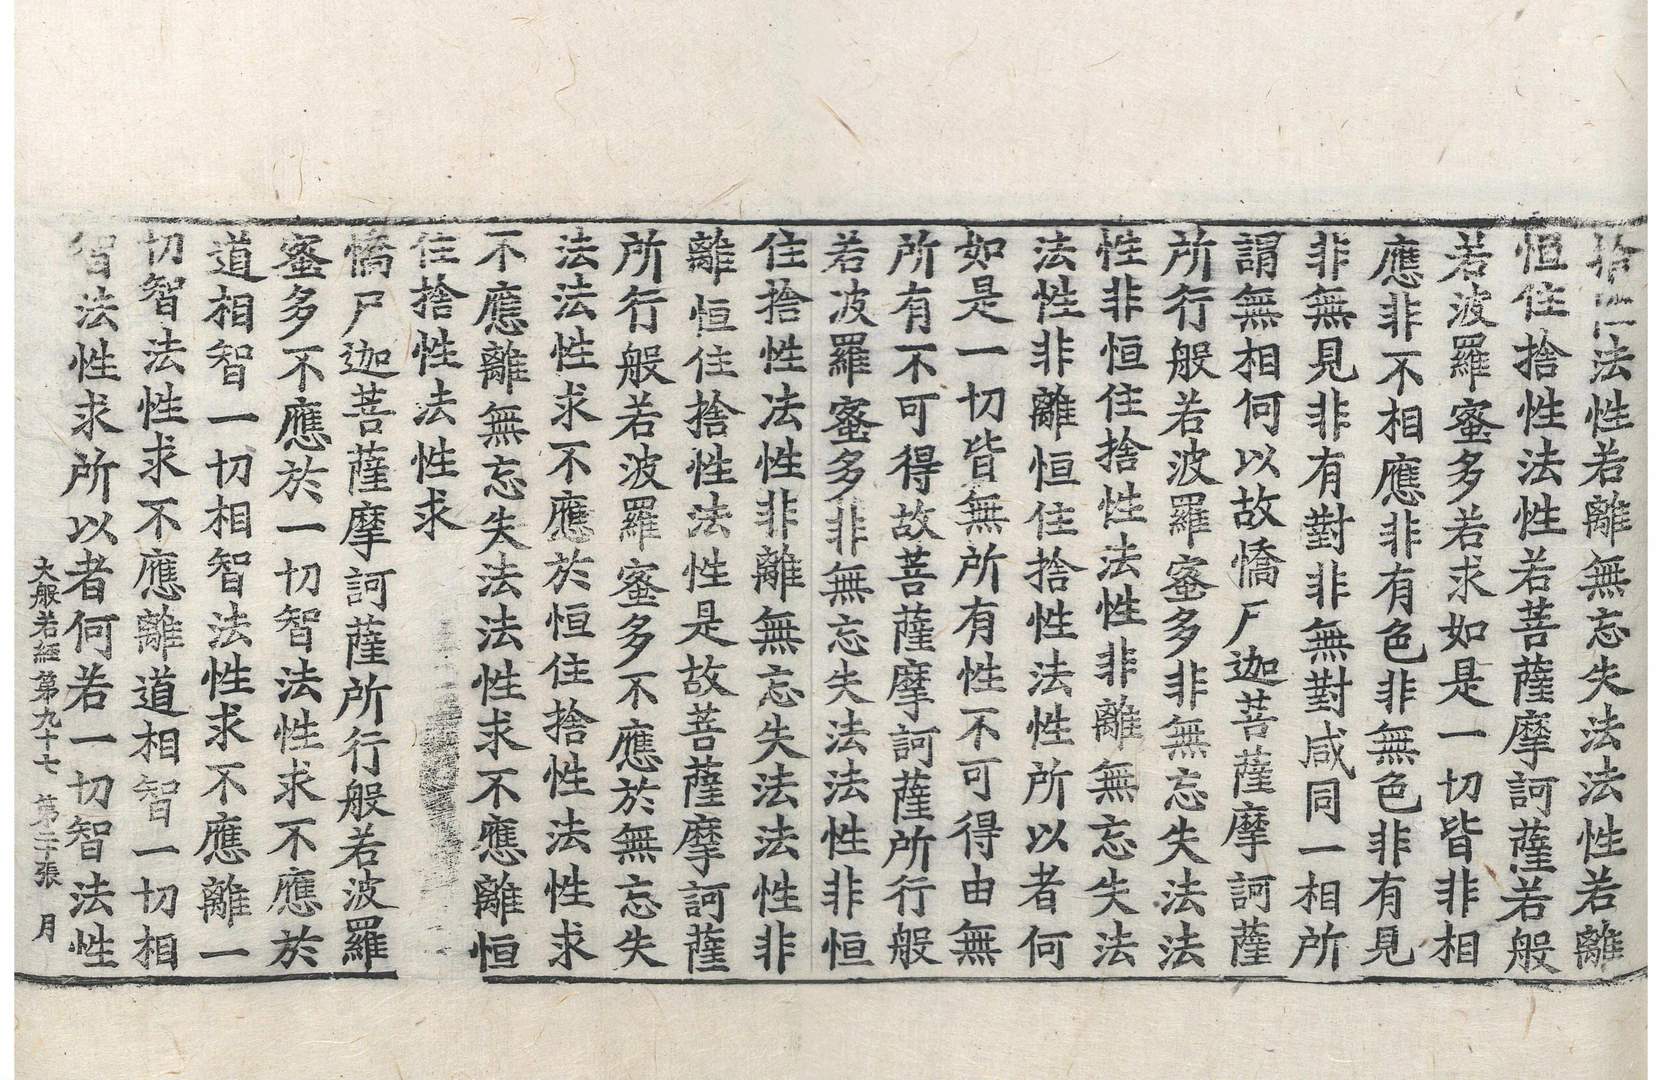 捨法性若離無忘失法法性若離
恒住捨性法性若菩薩摩訶薩若般
若波羅蜜多若求如是一切皆非相
應非不相應非有色非無色非有見
非無見非有對非無對咸同一相所
謂無相何以故憍尸迦菩薩摩訶薩
所行般若波羅蜜多非無忘失法法
性非恒住捨性法性非離無忘失法
法性非離恒住捨性法性所以者何
如是一切皆無所有性不可得由無
所有不可得故菩薩摩訶薩所行般
若波羅蜜多非無忘失法法性非恒
住捨性法性非離無忘失法法性非
離恒住捨性法性是故菩薩摩訶薩
所行般若波羅蜜多不應於無忘失
法法性求不應於恒住捨性法性求
不應離無忘失法法性求不應離恒
住捨性法性求
憍尸迦菩薩摩訶薩所行般若波羅
蜜多不應於一切智法性求不應於
道相智一切相智法性求不應離一
切智法性求不應離道相智一切相
智法性求所以者何若一切智法性
大般若經第九十七 第二十張 月